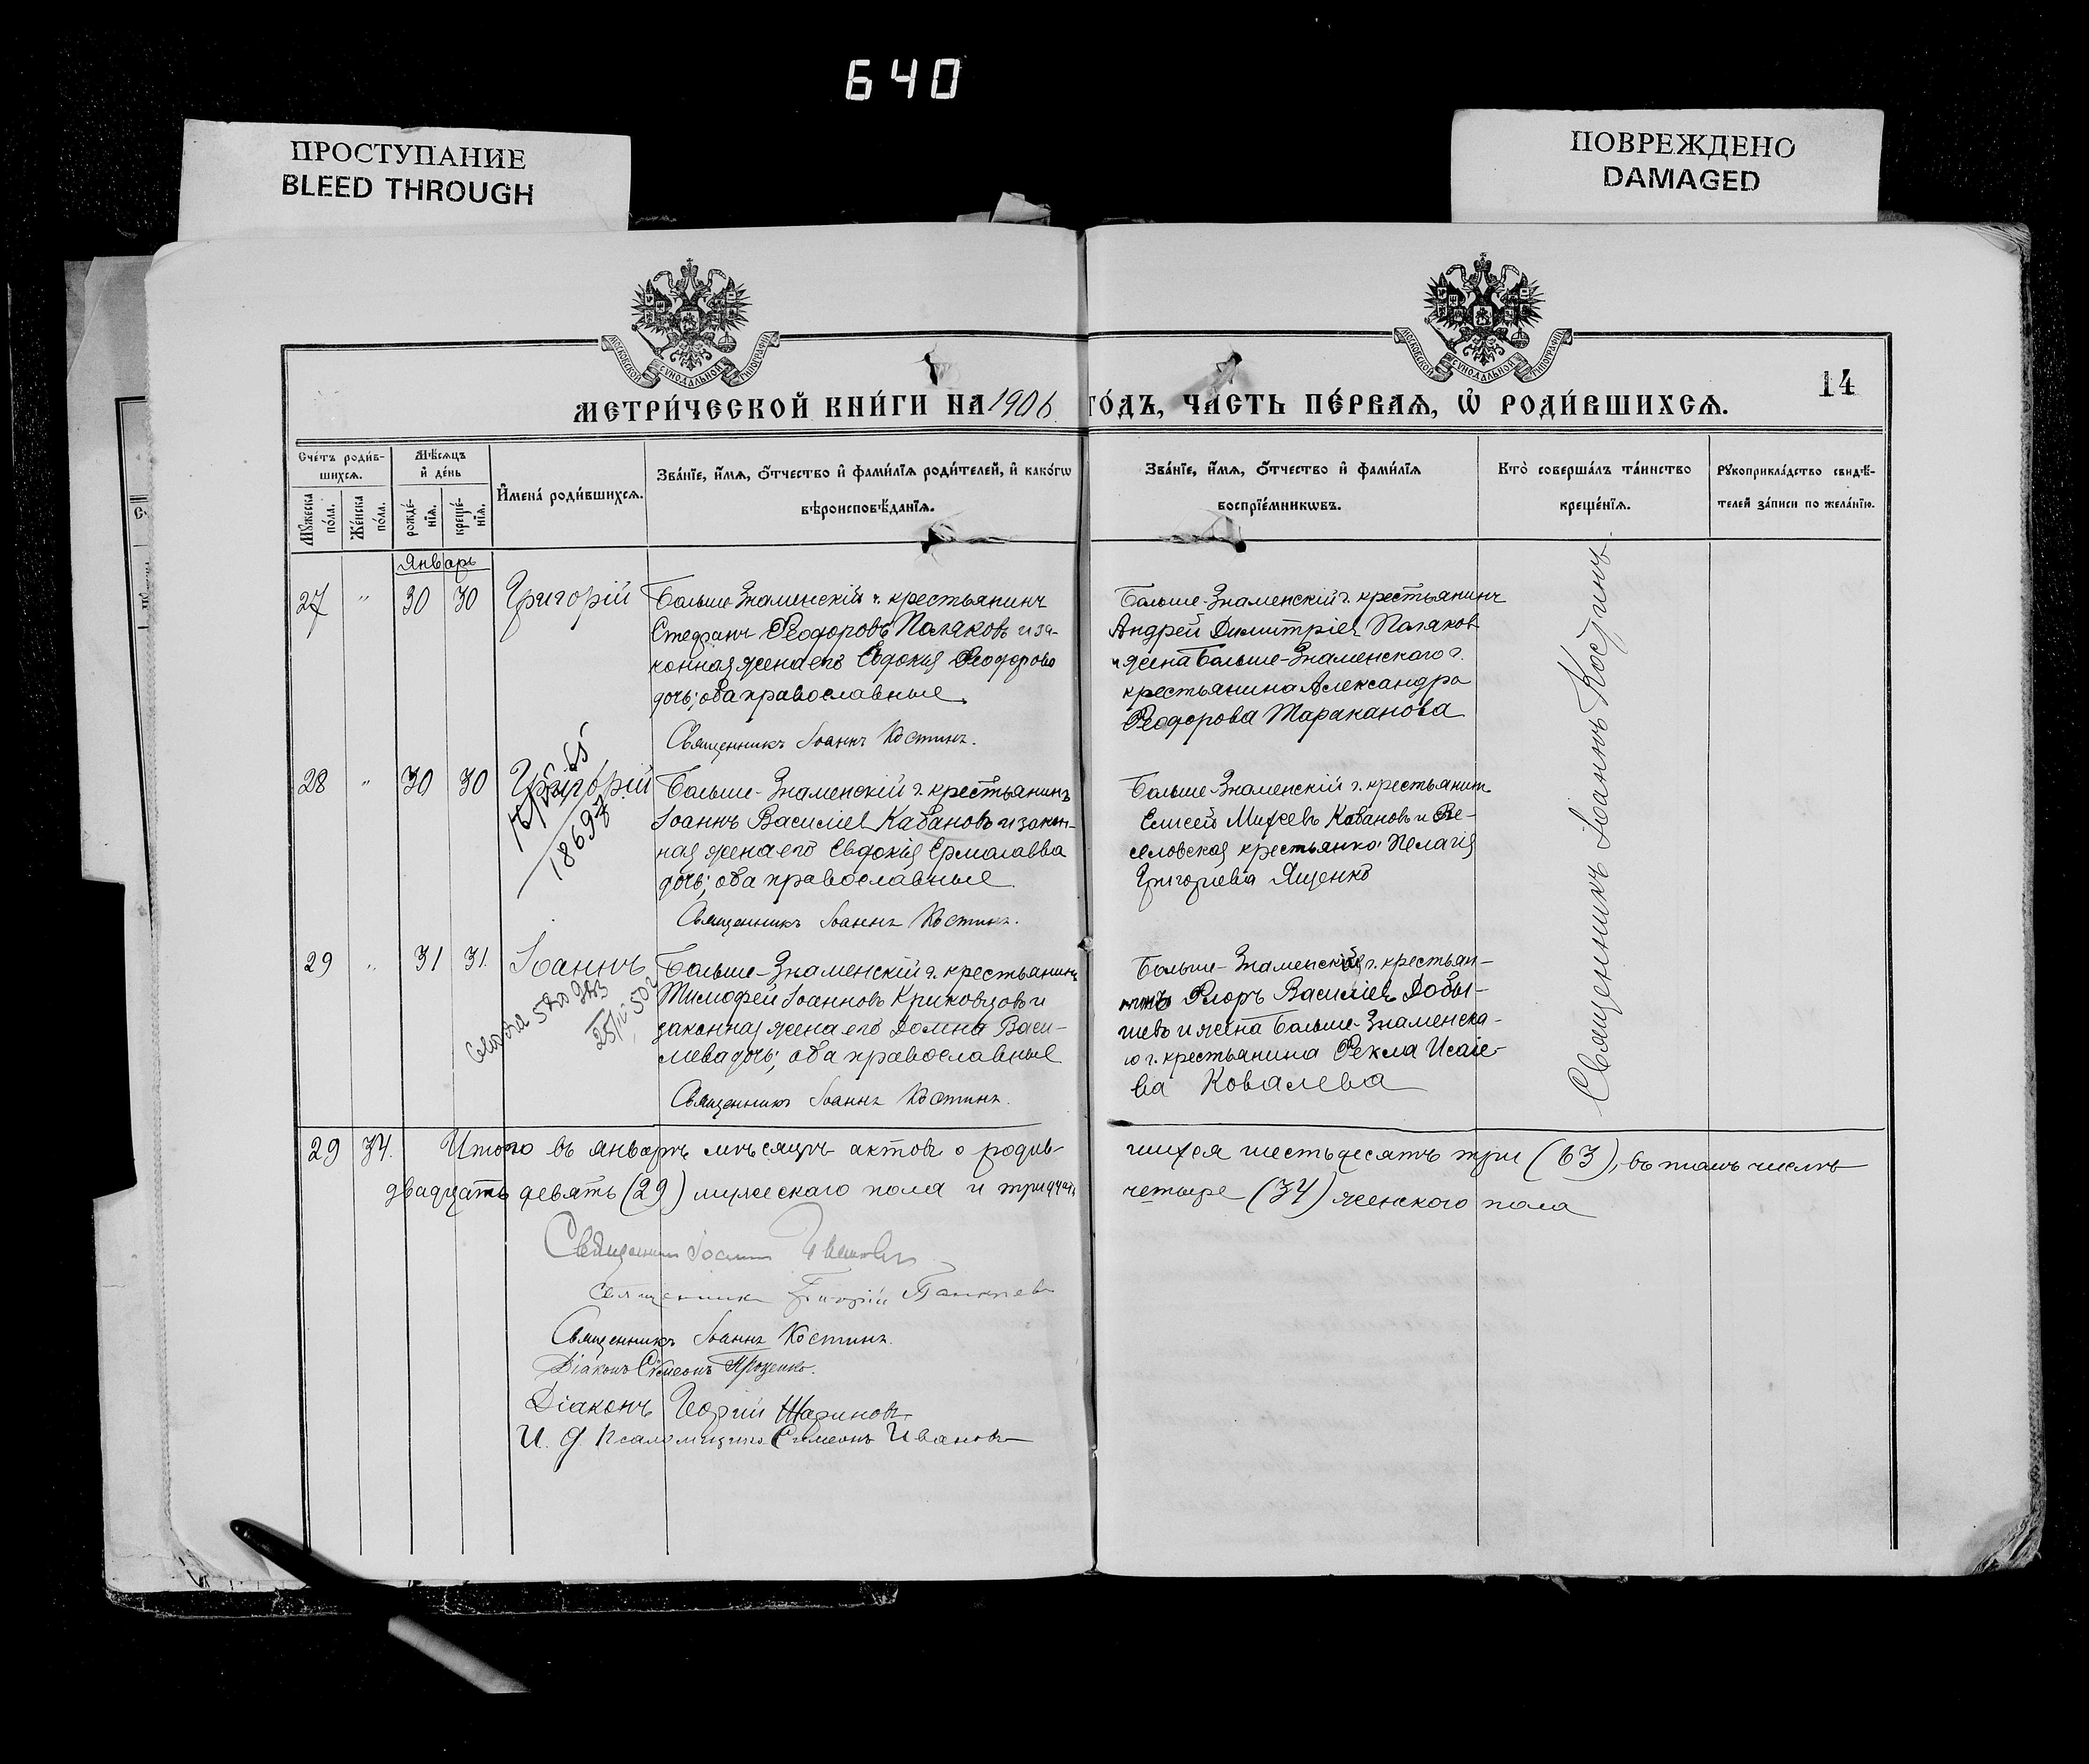 640
ПРОСТУПАНИЕ
BLEED THROUGH
ПОВРЕЖДЕНО
DAMAGED
МОСКОВСКОЙ СѴНОДАЛЬНОЙ ТИПОГРАФІИ
МОСКОВСКОЙ СѴНОДАЛЬНОЙ ТИПОГРАФІИ
14
МЕТРИ́ЧЕСКОЙ КНИ́ГИ НА 1906 ГО́ДЪ, ЧА́СТЬ ПЕ́РВАѦ, Ѡ РОДИ́ВШИХСѦ.
Сче́тъ роди́в-
шихсѧ.
Мꙋ́жеска по́ла.
Же́нска по́ла.
Мѣ́сѧцъ
и҆ де́нь
рожде́-нїѧ.
креще́-нїѧ.
И҆мена̀ роди́вшихсѧ.
Зва́нїе, и҆́мѧ, ѻ҆́тчество и҆ фами́лїѧ роди́телей, и҆ како́гѡ
вѣроисповѣ́данїѧ.
Зва́нїе, и҆́мѧ, ѻ҆́тчество и҆ фами́лїѧ
воспрїе́мникѡвъ.
Кто̀ соверша́лъ та́инство
креще́нїѧ.
Рꙋкоприкла́дство свидѣ́-
телей за́писи по жела́нїю.
Январь
27 " 30 30 Григорій
Больше-Знаменскій г. крестьянинъ
Стефанъ Ѳеодоровъ Поляковъ и за-
конная жена его Евдокія Ѳеодорова
дочь; оба православные
Священникъ Іоаннъ Костинъ.
Больше-Знаменскій г. крестьянинъ
Андрей Димитріевъ Поляковъ
и жена Больше-Знаменского г.
крестьянина Александра
Ѳеодорова Тараканова
28 " 30 30 Григорій
18697
Больше-Знаменскій г. крестьянинъ
Іоаннъ Василіев Кабановъ и закон-
ная жена его Евдокія Ермолаева
дочь; оба православные
Священникъ Іоаннъ Костинъ.
Больше-Знаменскій г. крестьянинъ
Елисей Михеевъ Кабановъ и Ве-
селовская крестьянка Пелагія
Григоріева Ященко
29 " 31 31. Іоаннъ
Больше-Знаменскій г. крестьянинъ
Тимофей Іоанновъ Криковцовъ и
законная жена его Домна Васи-
лева дочь; оба православные
Священникъ Іоаннъ Костинъ.
Больше-Знаменскій г. крестьян-
инъ Флоръ Василіевъ Добы-
шевъ и жена Больше-Знаменска-
го г. крестьянина Ѳекла Исаіе-
ва Ковалева
Священникъ Іоаннъ Костинъ
29 34. Итого въ январѣ мѣсяцѣ актовъ о родив-
шихся шестьдесятъ три (63), въ томъ числѣ
двадцать девять (29) мужескаго пола и тридцать
четыре (34) женского пола
Священникъ Іоаннъ
Священникъ
Священникъ Іоаннъ Костинъ.
Діаконъ Симеонъ Проценко.
Діаконъ Георгий Шариновъ
И. д. псаломщика Симеонъ Ивановъ